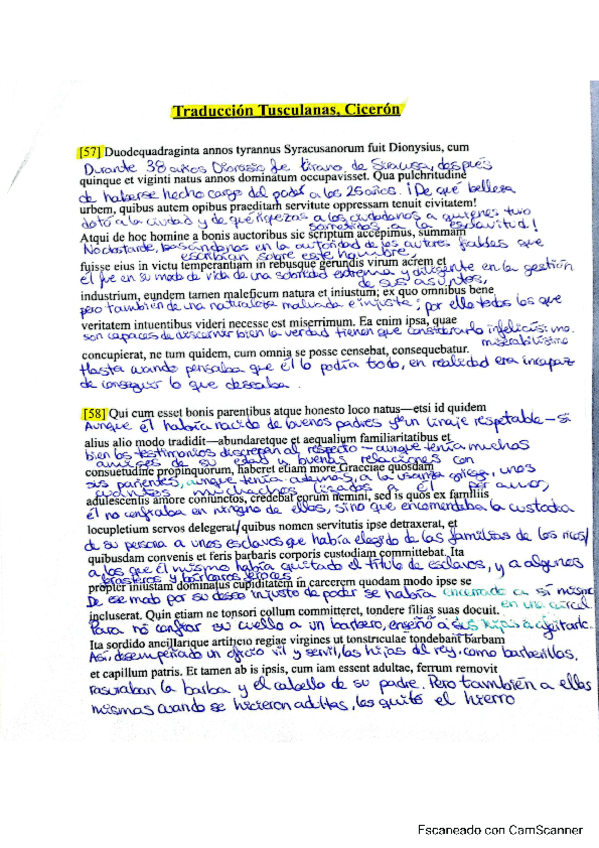 Traducción Tusculanas, Cicerón
[57] Duodequadraginta annos tyrannus Syracusanorum fuit Dionysius, cum
Durante 38 años Dionisio fue tirano de Siracusa, después
quinque et viginti natus annos dominatum occupavisset. Qua pulchritudine
de haberse hecho cargo del poder a los 25 años. ¡De qué belleza
urbem, quibus autem opibus praeditam servitute oppressam tenuit civitatem!
dotó a la ciudad y de qué riquezas a los ciudadanos a quienes tuvo
sometidos a la esclavitud!
Atqui de hoc homine a bonis auctoribus sic scriptum accepimus, summam
No obstante, basándonos en la autoridad de los autores fiables que
escribían sobre este hombre,
fuisse eius in victu temperantiam in rebusque gerundis virum acrem et
él fue en su modo de vida de una sobriedad extrema y diligente en la gestión
de sus asuntos,
industrium, eundem tamen maleficum natura et iniustum; ex quo omnibus bene
pero también de una naturaleza malvada e injusta; por ello todos los que
veritatem intuentibus videri necesse est miserrimum. Ea enim ipsa, quae
son capaces de discernir bien la verdad tienen que considerarlo infelicísimo.
miserabilísimo
concupierat, ne tum quidem, cum omnia se posse censebat, consequebatur.
Hasta cuando pensaba que él lo podía todo, en realidad era incapaz
de conseguir lo que deseaba.
[58] Qui cum esset bonis parentibus atque honesto loco natus—etsi id quidem
Aunque él había nacido de buenos padres y en un linaje respetable – si
alius alio modo tradidit—abundaretque et aequalium familiaritatibus et
bien los testimonios discrepan al respecto – aunque tenía muchos
amigos de su edad y buenas relaciones con
consuetudine propinquorum, haberet etiam more Graeciae quosdam
sus parientes, aunque tenía además, a la usanza griega, unos
muchachos ligados a él por amor,
adulescentis amore coniunctos, credebat eorum nemini, sed is quos ex familiis
él no confiaba en ninguno de ellos, sino que encomendaba la custodia
locupletium servos delegerat, quibus nomen servitutis ipse detraxerat, et
de su persona a unos esclavos que había elegido de las familias de los ricos/
quibusdam convenis et feris barbaris corporis custodiam committebat. Ita
a los que él mismo había quitado el título de esclavos, y a algunos
forasteros y bárbaros feroces.
propter iniustam dominatus cupiditatem in carcerem quodam modo ipse se
De ese modo por su deseo injusto de poder se había encerrado a sí mismo
en una cárcel.
incluserat. Quin etiam ne tonsori collum committeret, tondere filias suas docuit.
Para no confiar su cuello a un barbero, enseñó a sus hijas a afeitarle.
Ita sordido ancillarique artificio regiae virgines ut tonstriculae tondebant barbam
Así, desempeñando un oficio vil y servil, las hijas del rey, como barberillas,
et capillum patris. Et tamen ab is ipsis, cum iam essent adultae, ferrum removit
rasuraban la barba y el cabello de su padre. Pero también a ellas
mismas cuando se hicieron adultas, les quitó el hierro
Escaneado con CamScanner